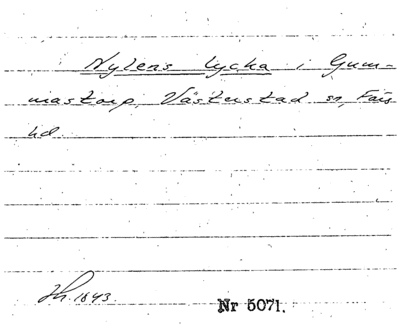 Nylens lycka i Gum-
mastorp, Västerstad sn, Färs
hd
Jh. 1843.
Nr 5071.